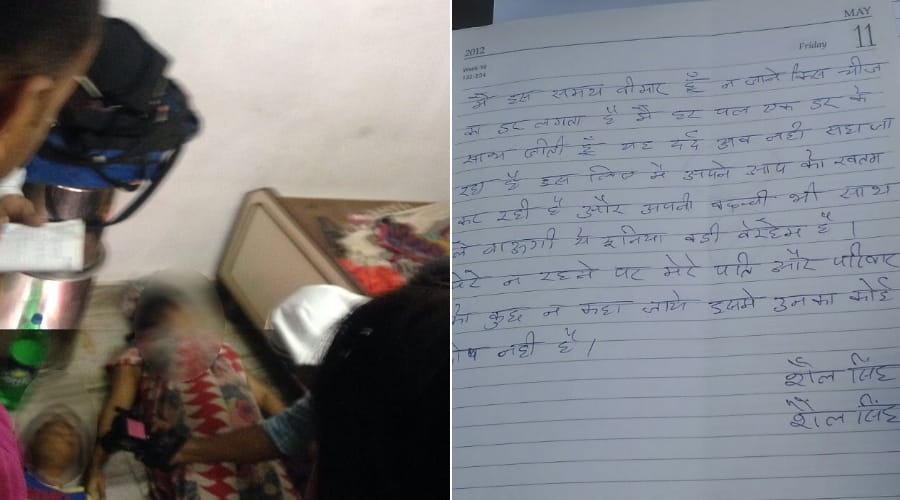 2012
MAY
Friday
11
Week-19
132-234
मै इस समय बीमार हूँ न जाने किस चीज
स डर लगता है मै हर पल एक डर के
साथ जीती हूँ यह दर्द अब नही सहा जा
रहा है इस लिए मै अपने आप को खतम
कर रही हूँ और अपनी बच्ची भी साथ
ले जाऊगी ये दुनिया बडी बेरहम है ।
मेरे न रहने पर मेरे पति और परिवार
को कुछ न कहा जाये इसमे उनका कोई
नही है ।
शैल सिंह
शैल सिंह